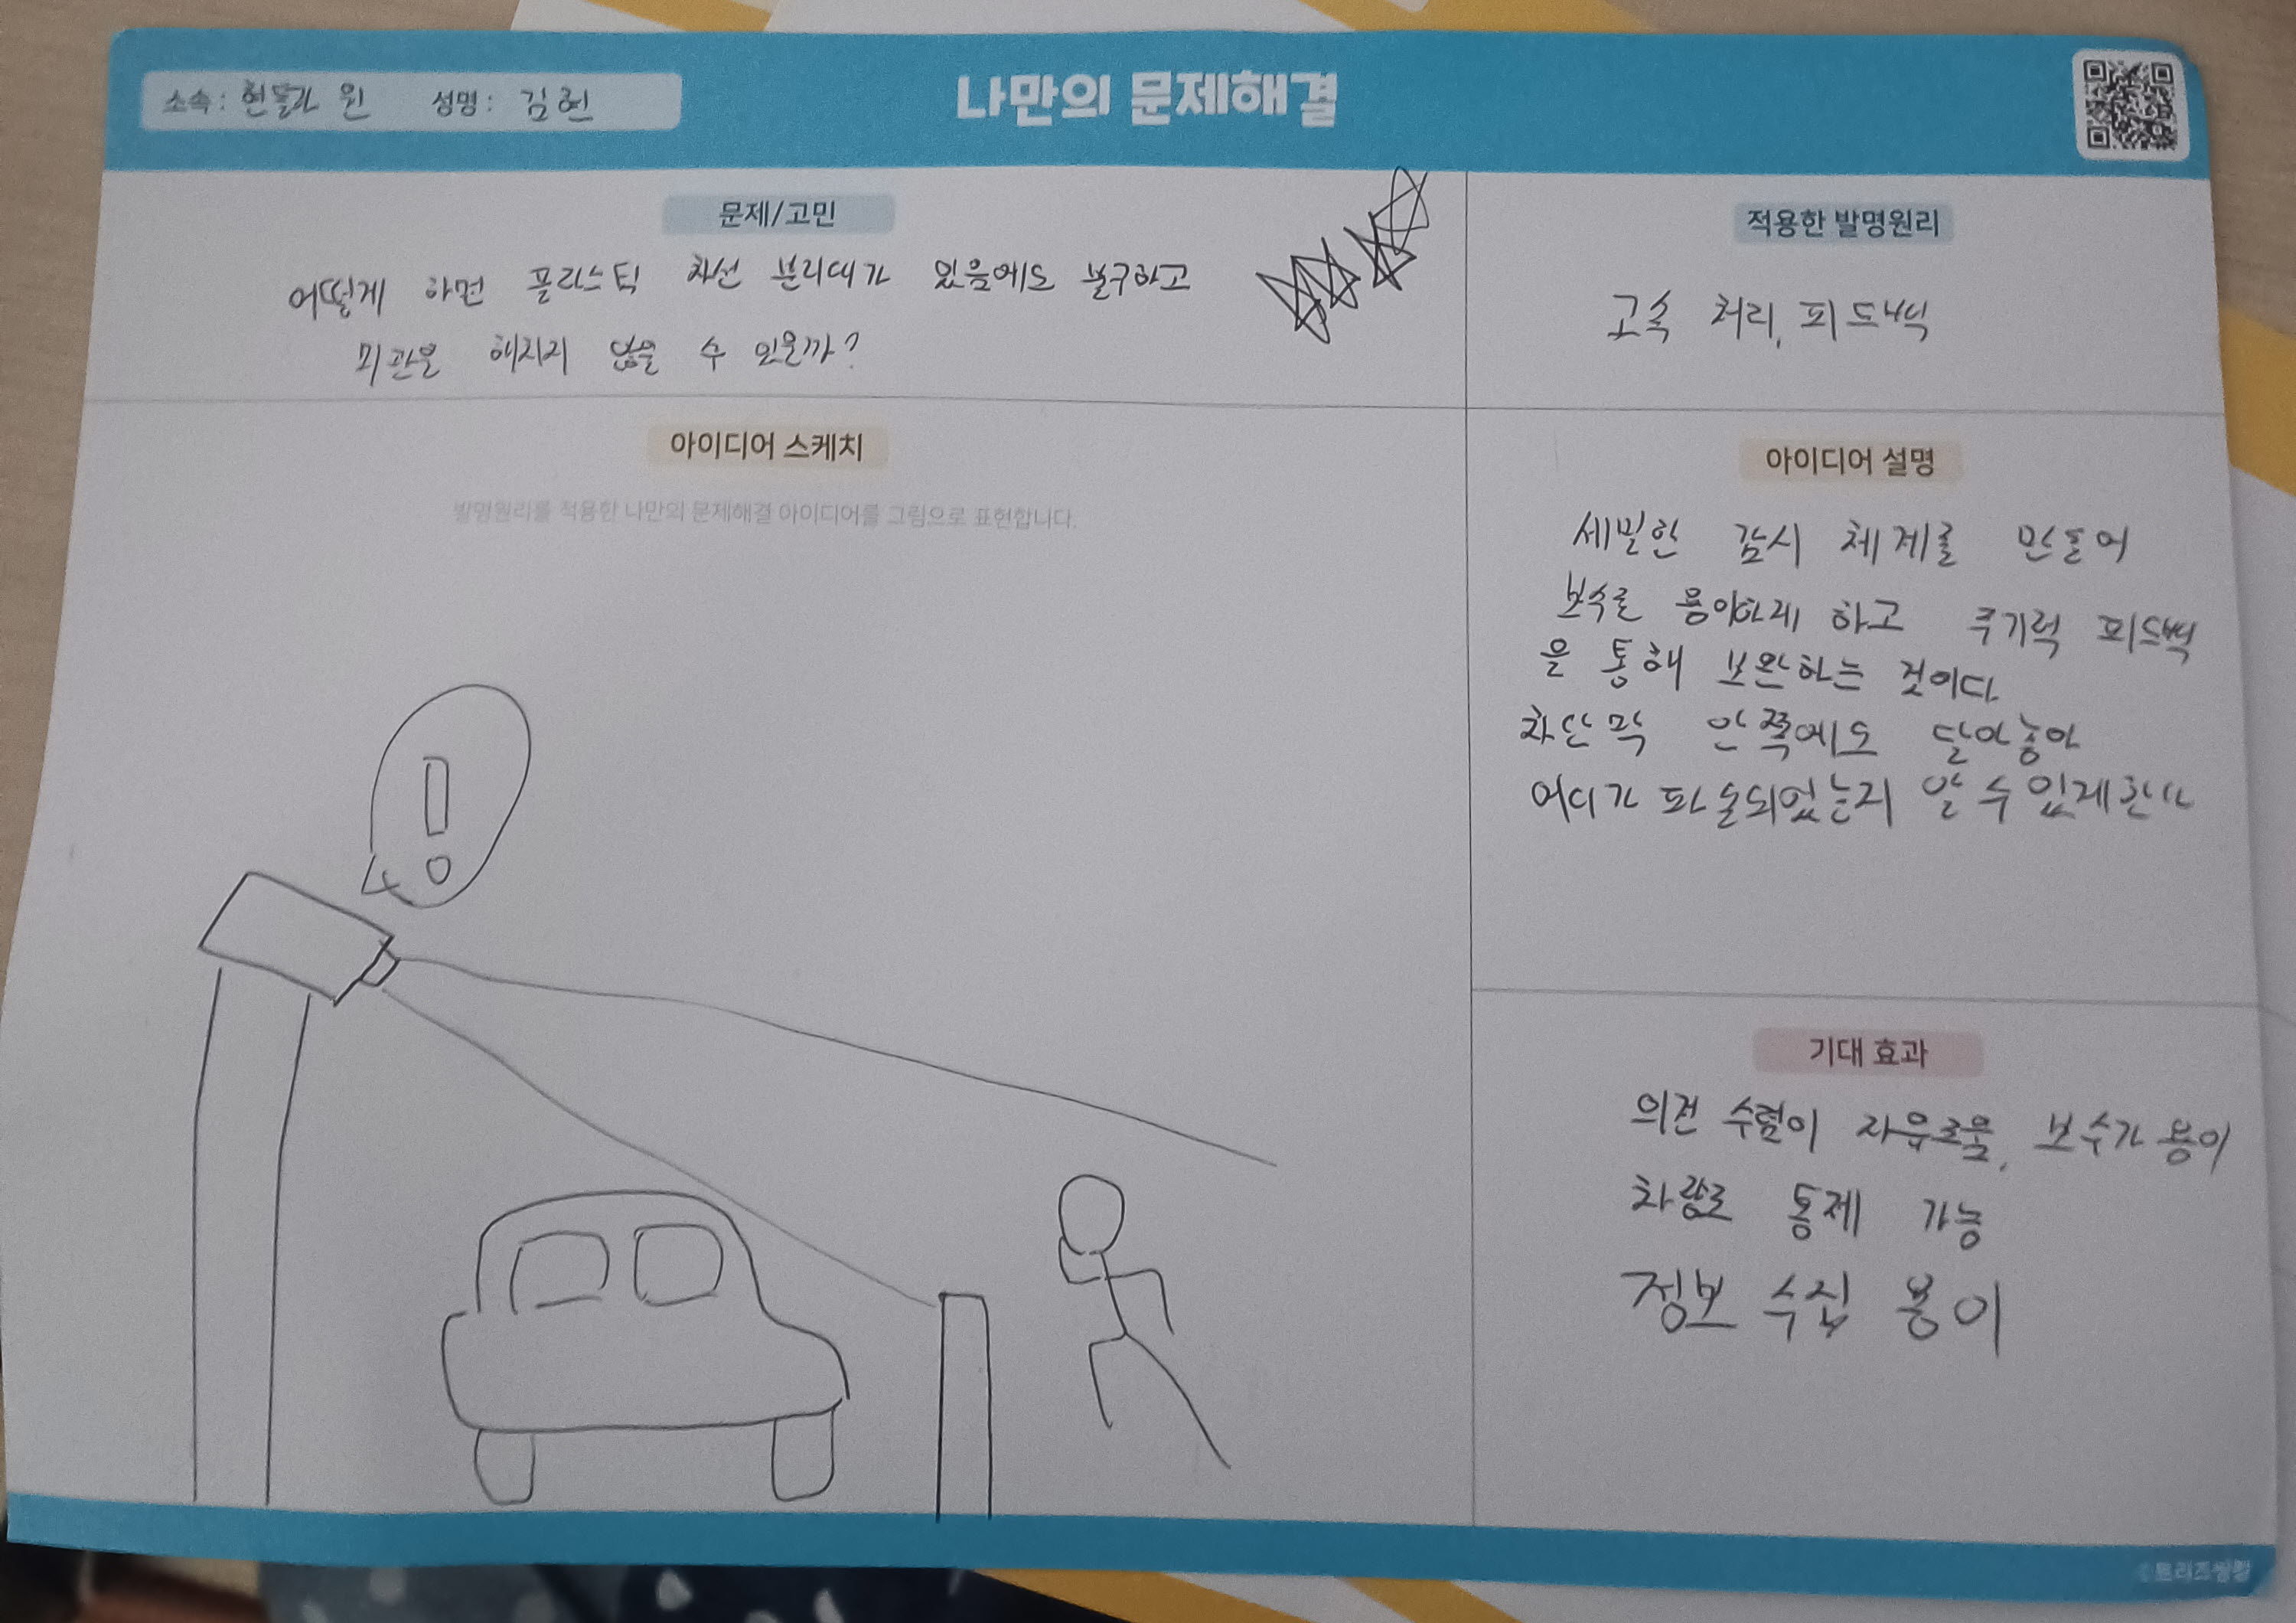 소속: 현물가 원 성명: 김현
나만의 문제해결
문제/고민
어떻게 하면 플라스틱 차선 분리대가 있음에도 불구하고
미관을 해치지 않을 수 있을까?
적용한 발명원리
고속 처리, 피드백
아이디어 스케치
발명원리를 적용한 나만의 문제해결 아이디어를 그림으로 표현합니다.
!
아이디어 설명
세밀한 감시 체계를 만들어
보수를 용이하게 하고 주기적 피드백
을 통해 보완하는 것이다.
차단막 안쪽에도 달아놓아
어디가 파손되었는지 알 수 있게 한다
기대 효과
의견 수렴이 자유로움, 보수가 용이
차량로 통제 가능
정보 수집 용이
©트리즈씽킹